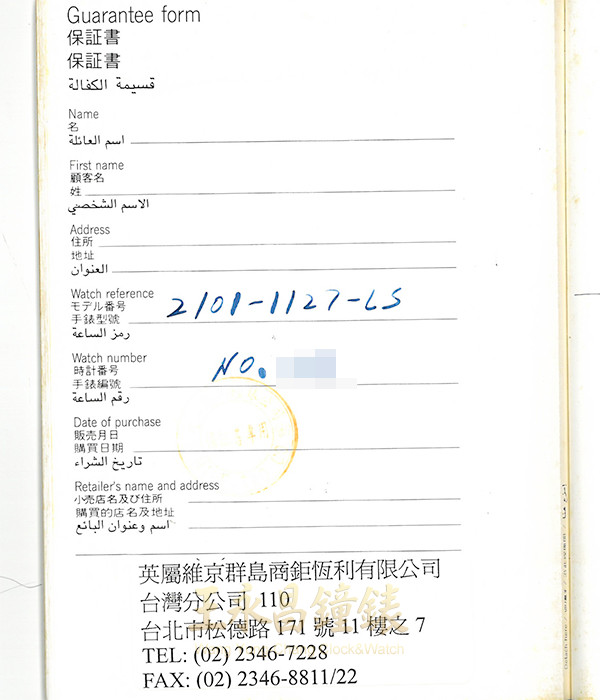 Guarantee form
保証書
保証書
قسيمة الكفالة
Name
名
اسم العائلة
First name
顧客名
姓
الاسم الشخصي
Address
住所
地址
العنوان
Watch reference
モデル番号
手錶型號
رمز الساعة
2101-1127-LS
Watch number
時計番号
手錶編號
رقم الساعة
NO.
Date of purchase
販売月日
購買日期
تاريخ الشراء
Retailer's name and address
小売店名及び住所
購買的店名及地址
اسم وعنوان البائع
英屬維京群島商鉅恆利有限公司
台灣分公司 110
台北市松德路 171 號 11 樓之 7
TEL: (02) 2346-7228
FAX: (02) 2346-8811/22
王永昌鐘錶